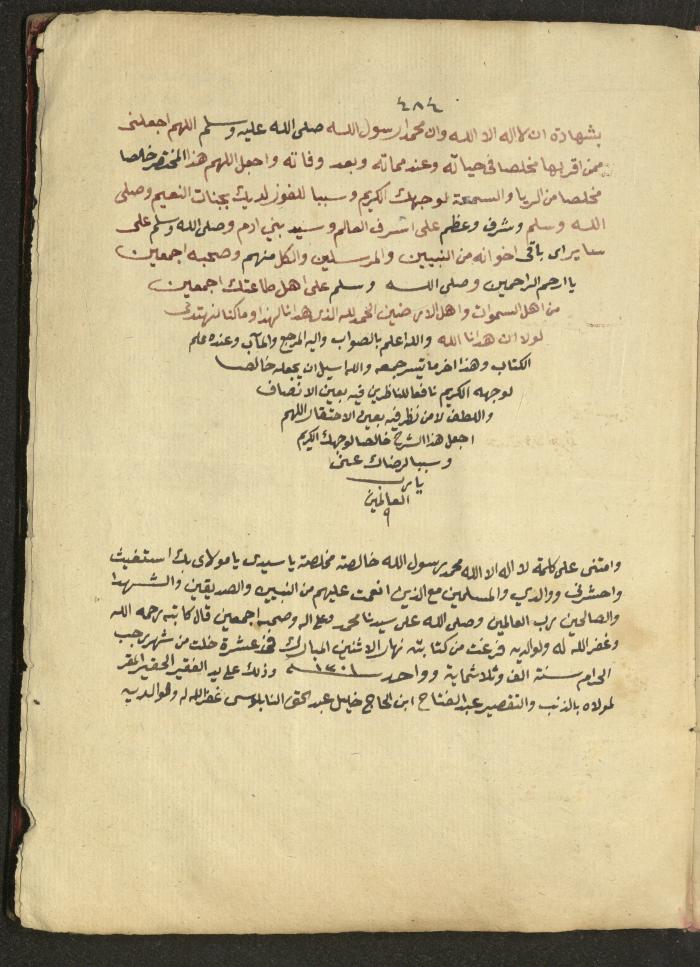 ٤٨٤
بشهادة ان لا اله الا الله وان محمدا رسول الله صلى الله عليه وسلم اللهم اجعلنى
ممن اقر بها مخلصا فى حياته وعند مماته وبعد وفاته واجعل اللهم هذا المختصر خلصا
مخلصا من الريا والسمعة لوجهك الكريم وسببا للفوز لديك بجنات النعيم وصلى
الله وسلم وشرف وعظم على اشرف العالم وسيد بني ادم وصلى الله وسلم على
ساير اى باقى اخوانه من النبيين والمرسلين والكل منهم وصحبه اجمعين
يا ارحم الراحمين وصلى الله وسلم على اهل طاعتك اجمعين
من اهل السموات واهل الارضين الحمد لله الذى هدانا لهذا وما كنا لنهتدى
لولا ان هدانا الله والله اعلم بالصواب واليه المرجع والمآب وعنده علم
الكتاب وهذا اخر ما تيسر جمعه والله اسيل ان يجعله خالصا
لوجهه الكريم نافعا للناظرين فيه بعين الانصاف
واللطف لا من نظر فيه بعين الاحتقار اللهم
اجعل هذا الشرح خالصا لوجهك الكريم
وسببا لرضاك عنى
يا رب
العالمين
وامتنى على كلمة لا اله الا الله محمد رسول الله خالصة مخلصة يا سيدى يا مولاى بك استغيث
واحشرنى ووالدي والمسلمين مع الذين انعمت عليهم من النبيين والصديقين والشهدا
والصالحين يرب العالمين وصلى الله على سيدنا محمد وعلى اله وصحبه اجمعين قال كاتبه رحمه الله
وغفر الله له ولوالديه فرغت من كتابته نهار الاثنين المبارك فى عشرة خلت من شهر رجب
الحرام سنة الف وثلاثماية وواحد ١٣٠١ وذلك على يد الفقير الحقير المقر
لمولاه بالذنب والتقصير عبد الفتاح ابن الحاج خليل عبد الحق النابلوسى غفر الله له ولوالديه